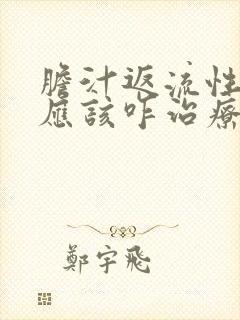 膽汁返流性
應該咋治療
鄭宇飛